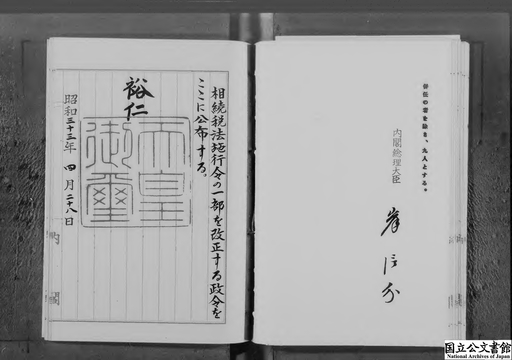 併任の者を除き、九人とする。
内閣総理大臣
岸信介
相続税法施行令の一部を改正する政令を
ここに公布する。
裕仁
天皇御璽
昭和三十三年 四月二十八日
内閣
国立公文書館
National Archives of Japan